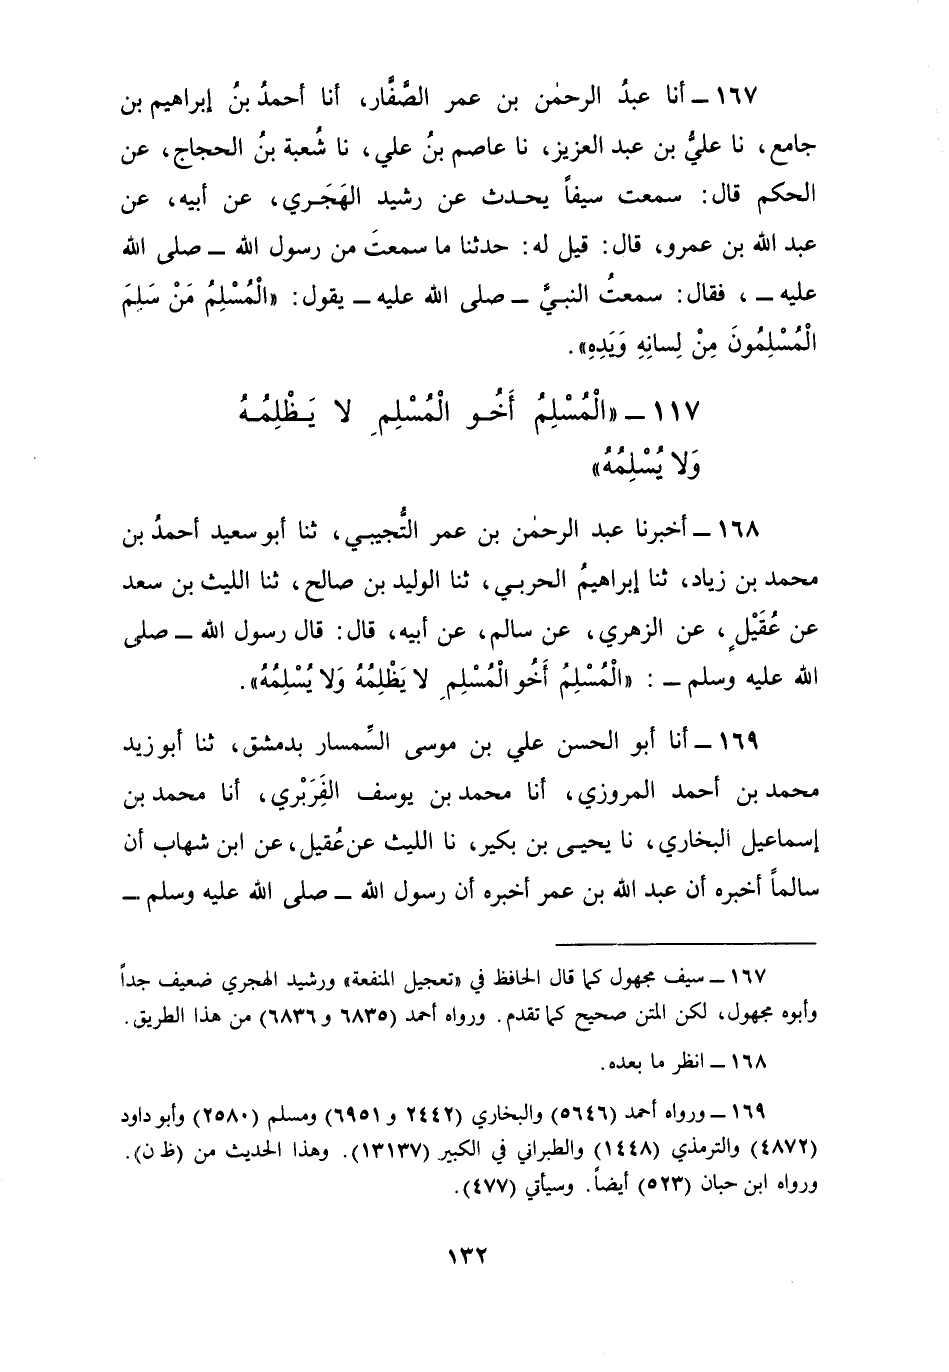 ١٦٧ ــ أنا عبدُ الرحمٰن بن عمر الصَّفَّار، أنا أحمدُ بنُ إبراهيم بن
جامع، نا عليُّ بن عبد العزيز، نا عاصم بنُ علي، نا شُعبة بنُ الحجاج، عن
الحكم قال: سمعت سيفاً يحدث عن رشيد الهَجَري، عن أبيه، عن
عبد الله بن عمرو، قال: قيل له: حدثنا ما سمعتَ من رسول الله ــ صلى الله
عليه ــ، فقال: سمعتُ النبيَّ ــ صلى الله عليه ــ يقول: «الْمُسْلِمُ مَنْ سَلِمَ
الْمُسْلِمُونَ مِنْ لِسانِهِ وَيَدِهِ».
١١٧ ــ «الْمُسْلِمُ أَخُو الْمُسْلِمِ لا يَظْلِمُهُ
وَلا يُسْلِمُهُ»
١٦٨ ــ أخبرنا عبد الرحمٰن بن عمر التُّجيبي، ثنا أبو سعيد أحمدُ بن
محمد بن زياد، ثنا إبراهيمُ الحربي، ثنا الوليد بن صالح، ثنا الليث بن سعد
عن عُقَيْلٍ، عن الزهري، عن سالم، عن أبيه، قال: قال رسول الله ــ صلى
الله عليه وسلم ــ: «الْمُسْلِمُ أَخُو الْمُسْلِمِ لا يَظْلِمُهُ وَلا يُسْلِمُهُ».
١٦٩ ــ أنا أبو الحسن علي بن موسى السِّمسار بدمشق، ثنا أبو زيد
محمد بن أحمد المروزي، أنا محمد بن يوسف الفَرَبْري، أنا محمد بن
إسماعيل البخاري، نا يحيى بن بكير، نا الليث عن عُقيل، عن ابن شهاب أن
سالماً أخبره أن عبد الله بن عمر أخبره أن رسول الله ــ صلى الله عليه وسلم ــ
١٦٧ ــ سيف مجهول كما قال الحافظ في «تعجيل المنفعة» ورشيد الهجري ضعيف جداً
وأبوه مجهول، لكن المتن صحيح كما تقدم. ورواه أحمد (٦٨٣٥ و ٦٨٣٦) من هذا الطريق.
١٦٨ ــ انظر ما بعده.
١٦٩ ــ ورواه أحمد (٥٦٤٦) والبخاري (٢٤٤٢ و ٦٩٥١) ومسلم (٢٥٨٠) وأبو داود
(٤٨٧٢) والترمذي (١٤٤٨) والطبراني في الكبير (١٣١٣٧). وهذا الحديث من (ظ ن).
ورواه ابن حبان (٥٢٣) أيضاً. وسيأتي (٤٧٧).
١٣٢